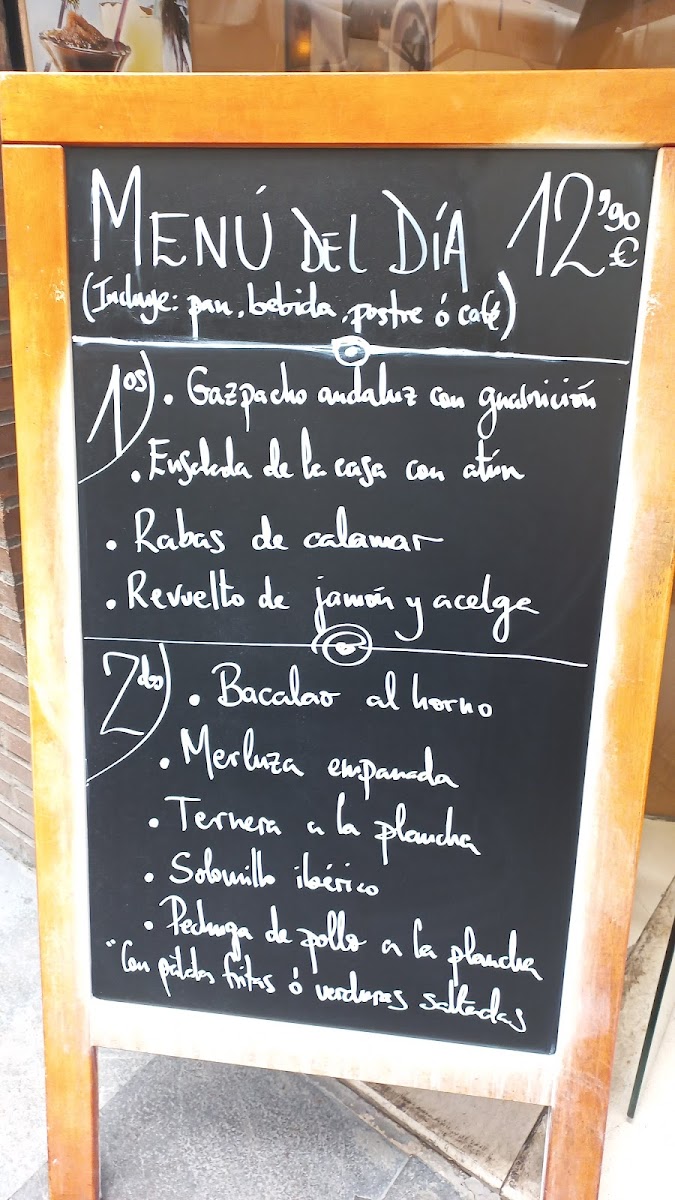 MENÚ DEL DÍA 12,90 €
(Incluye: pan, bebida, postre ó café)
1os) . Gazpacho andaluz con guarnición
. Ensalada de la casa con atún
. Rabas de calamar
. Revuelto de jamón y acelga
2dos) . Bacalao al horno
. Merluza empanada
. Ternera a la plancha
. Solomillo ibérico
. Pechuga de pollo a la plancha
"Con patatas fritas ó verduras salteadas